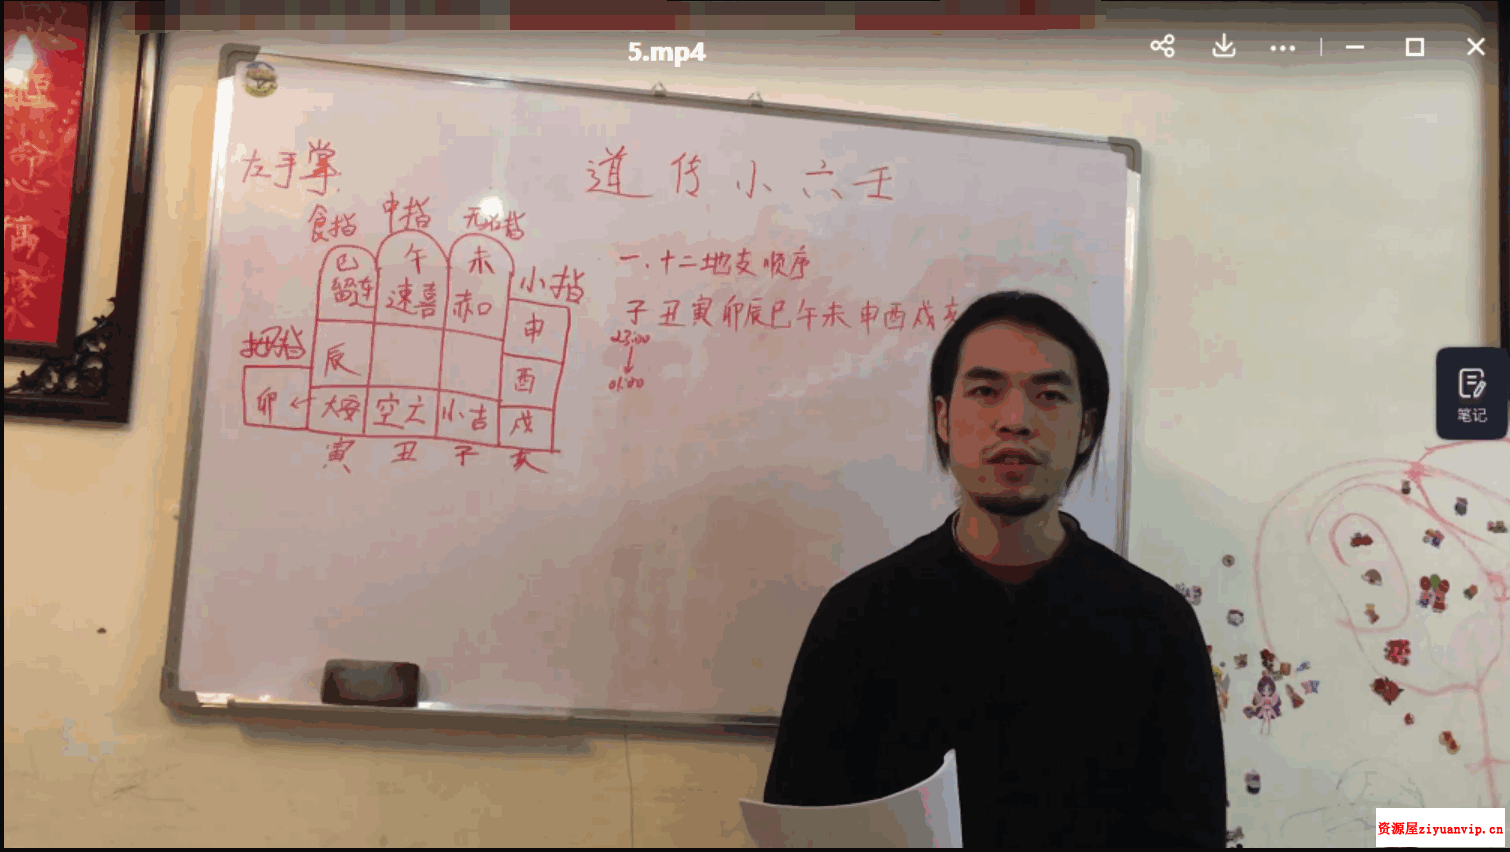 5.mp4
左手掌
道传小六壬
食指 中指 无名指
巳 午 未
留连 速喜 赤口
小指
申
拇指
辰
酉
卯 ← 大安 空亡 小吉 戌
寅 丑 子 亥
一、十二地支顺序
子丑寅卯辰巳午未申酉戌亥
23:00
↓
01:00
笔记
资源屋ziyuanvip.cn